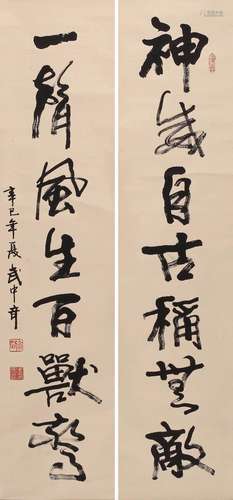 神威自古稱無敵
一聲風生百獸驚
辛巳年夏武中奇